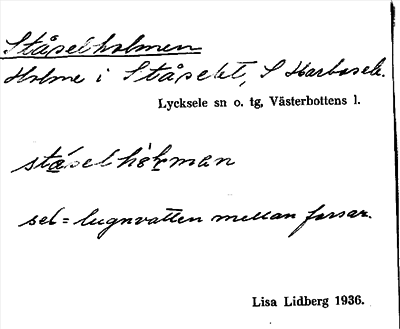 Ståselholmen
Holme i Ståselet, S Harbosele.
Lycksele sn o. tg, Västerbottens l.
sel = lugnvatten mellan forsar.
Lisa Lidberg 1936.